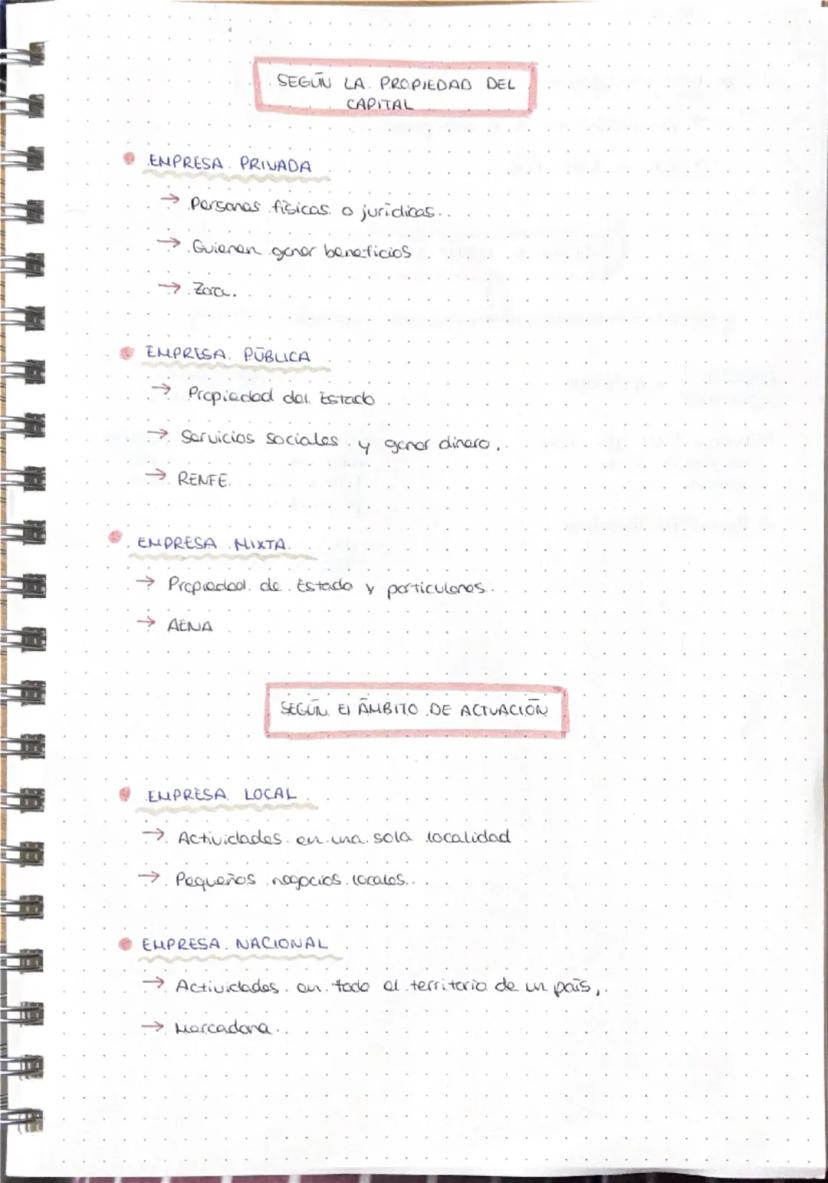 SEGÚN LA PROPIEDAD DEL
CAPITAL
EMPRESA PRIVADA
→ Personas físicas o jurídicas.
→ Quieren ganar beneficios
→ Zara.
EMPRESA PÚBLICA
→ Propiedad del Estado
→ Servicios sociales y ganar dinero.
→ RENFE.
EMPRESA MIXTA
→ Propiedad de Estado y particulares.
→ AENA
SEGÚN El ÁMBITO DE ACTUACIÓN
EMPRESA LOCAL
→ Actividades en una sola localidad
→ Pequeños negocios locales.
EMPRESA NACIONAL
→ Actividades en todo el territorio de un país.
→ Mercadona.